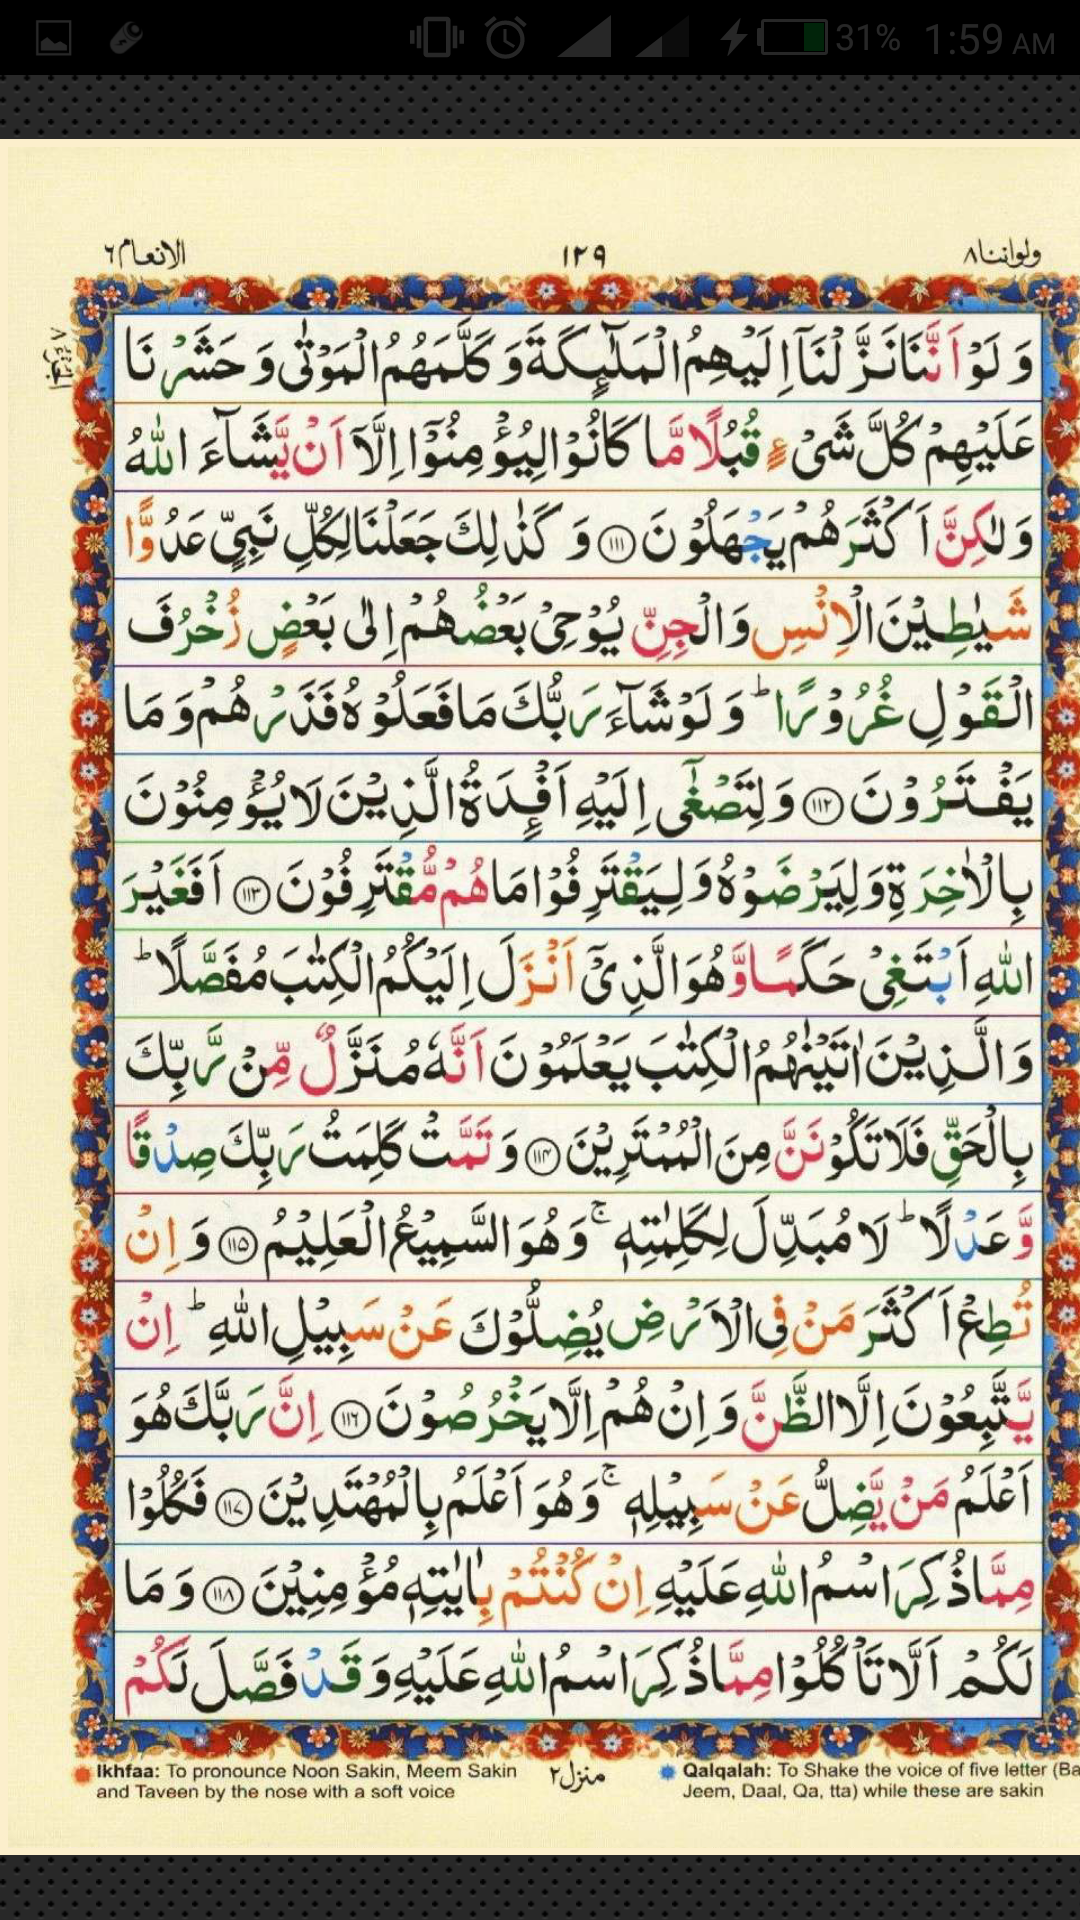 31% 1:59 AM
ولواننا٨ ١٢٩ الانعام٦
وَ لَوۡ اَنَّنَا نَزَّلۡنَاۤ اِلَيۡهِمُ الۡمَلٰٓئِكَةَ وَ كَلَّمَهُمُ الۡمَوۡتٰى وَ حَشَرۡنَا
عَلَيۡهِمۡ كُلَّ شَىۡءٍ قُبُلًا مَّا كَانُوۡا لِيُؤۡمِنُوۡۤا اِلَّاۤ اَنۡ يَّشَآءَ اللّٰهُ
وَلٰكِنَّ اَكۡثَرَهُمۡ يَجۡهَلُوۡنَ ﴿١١١﴾ وَ كَذٰلِكَ جَعَلۡنَا لِكُلِّ نَبِىٍّ عَدُوًّا
شَيٰطِيۡنَ الۡاِنۡسِ وَ الۡجِنِّ يُوۡحِىۡ بَعۡضُهُمۡ اِلٰى بَعۡضٍ زُخۡرُفَ
الۡقَوۡلِ غُرُوۡرًا ؕ وَ لَوۡ شَآءَ رَبُّكَ مَا فَعَلُوۡهُ فَذَرۡهُمۡ وَ مَا
يَفۡتَرُوۡنَ ﴿١١٢﴾ وَ لِتَصۡغٰٓى اِلَيۡهِ اَفۡـِٕدَةُ الَّذِيۡنَ لَا يُؤۡمِنُوۡنَ
بِالۡاٰخِرَةِ وَ لِيَرۡضَوۡهُ وَ لِيَقۡتَرِفُوۡا مَا هُمۡ مُّقۡتَرِفُوۡنَ ﴿١١٣﴾ اَفَغَيۡرَ
اللّٰهِ اَبۡتَغِىۡ حَكَمًا وَّ هُوَ الَّذِىۡۤ اَنۡزَلَ اِلَيۡكُمُ الۡكِتٰبَ مُفَصَّلًا ؕ
وَ الَّذِيۡنَ اٰتَيۡنٰهُمُ الۡكِتٰبَ يَعۡلَمُوۡنَ اَنَّهٗ مُنَزَّلٌ مِّنۡ رَّبِّكَ
بِالۡحَقِّ فَلَا تَكُوۡنَنَّ مِنَ الۡمُمۡتَرِيۡنَ ﴿١١٤﴾ وَ تَمَّتۡ كَلِمَتُ رَبِّكَ صِدۡقًا
وَّ عَدۡلًا ؕ لَا مُبَدِّلَ لِكَلِمٰتِهٖ ۚ وَ هُوَ السَّمِيۡعُ الۡعَلِيۡمُ ﴿١١٥﴾ وَ اِنۡ
تُطِعۡ اَكۡثَرَ مَنۡ فِى الۡاَرۡضِ يُضِلُّوۡكَ عَنۡ سَبِيۡلِ اللّٰهِ ؕ اِنۡ
يَّتَّبِعُوۡنَ اِلَّا الظَّنَّ وَ اِنۡ هُمۡ اِلَّا يَخۡرُصُوۡنَ ﴿١١٦﴾ اِنَّ رَبَّكَ هُوَ
اَعۡلَمُ مَنۡ يَّضِلُّ عَنۡ سَبِيۡلِهٖ ۚ وَ هُوَ اَعۡلَمُ بِالۡمُهۡتَدِيۡنَ ﴿١١٧﴾ فَكُلُوۡا
مِمَّا ذُكِرَ اسۡمُ اللّٰهِ عَلَيۡهِ اِنۡ كُنۡتُمۡ بِاٰيٰتِهٖ مُؤۡمِنِيۡنَ ﴿١١٨﴾ وَ مَا
لَكُمۡ اَلَّا تَاۡكُلُوۡا مِمَّا ذُكِرَ اسۡمُ اللّٰهِ عَلَيۡهِ وَ قَدۡ فَصَّلَ لَكُمۡ
منزل٢
Ikhfaa: To pronounce Noon Sakin, Meem Sakin
and Taveen by the nose with a soft voice
Qalqalah: To Shake the voice of five letter (Ba
Jeem, Daal, Qa, tta) while these are sakin